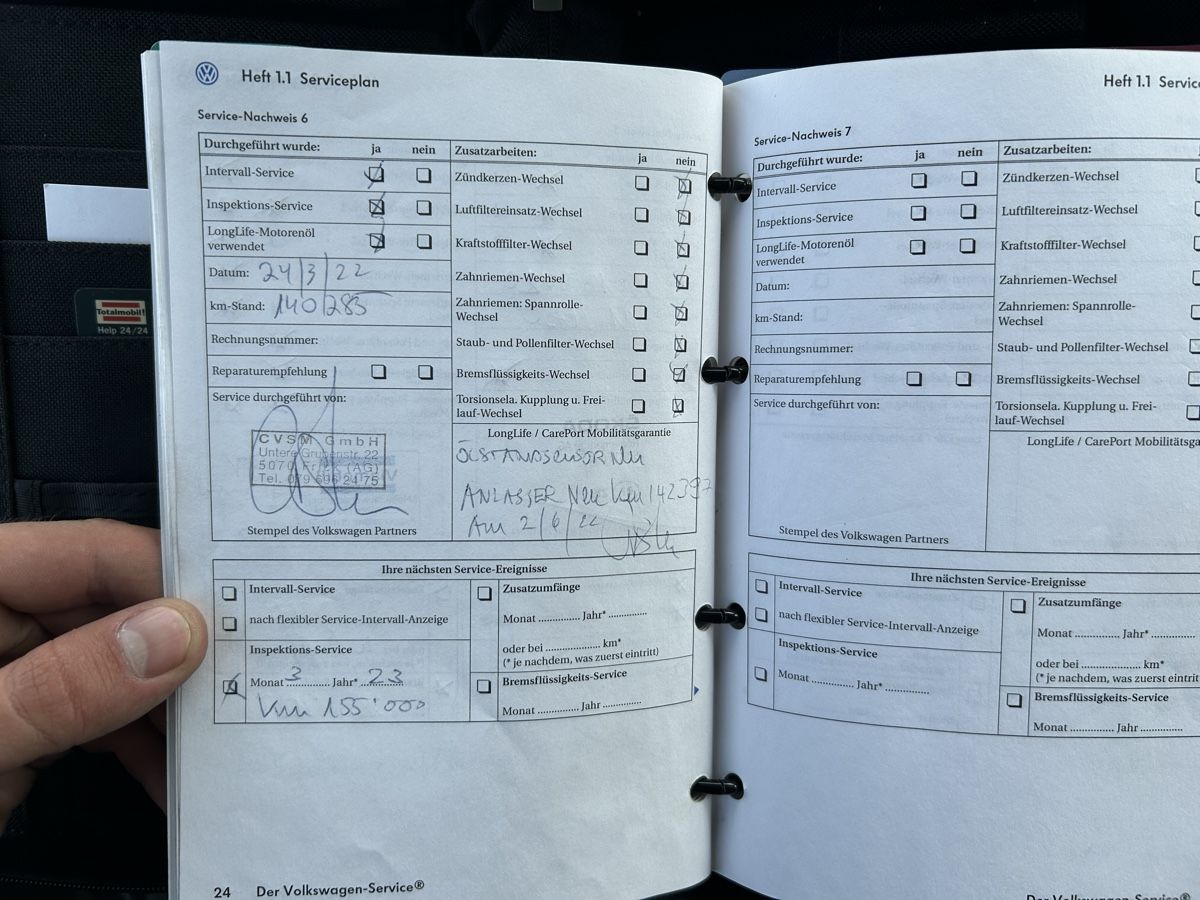 Heft 1.1 Serviceplan
Service-Nachweis 6
Durchgeführt wurde: ja nein
Intervall-Service
Inspektions-Service
LongLife-Motorenöl
verwendet
Datum: 24/3/22
km-Stand: 140/285
Rechnungsnummer:
Reparaturempfehlung
Service durchgeführt von:
CVSM GmbH
Untere Grubenstr. 22
5070 Frick (AG)
Tel. 079 696 24 75
Stempel des Volkswagen Partners
Zusatzarbeiten: ja nein
Zündkerzen-Wechsel
Luftfiltereinsatz-Wechsel
Kraftstofffilter-Wechsel
Zahnriemen-Wechsel
Zahnriemen: Spannrolle-
Wechsel
Staub- und Pollenfilter-Wechsel
Bremsflüssigkeits-Wechsel
Torsionsela. Kupplung u. Frei-
lauf-Wechsel
LongLife / CarePort Mobilitätsgarantie
ANLASSER Neu km 142397
Am 2/6/22
Ihre nächsten Service-Ereignisse
Intervall-Service
nach flexibler Service-Intervall-Anzeige
Inspektions-Service
Monat 3 Jahr* 23
km 155'000
Zusatzumfänge
Monat ............ Jahr* ............
oder bei ................ km*
(* je nachdem, was zuerst eintritt)
Bremsflüssigkeits-Service
Monat ............ Jahr ............
24 Der Volkswagen-Service®
Heft 1.1
Service-Nachweis 7
Durchgeführt wurde: ja nein
Intervall-Service
Inspektions-Service
LongLife-Motorenöl
verwendet
Datum:
km-Stand:
Rechnungsnummer:
Reparaturempfehlung
Service durchgeführt von:
Stempel des Volkswagen Partners
Zusatzarbeiten:
Zündkerzen-Wechsel
Luftfiltereinsatz-Wechsel
Kraftstofffilter-Wechsel
Zahnriemen-Wechsel
Zahnriemen: Spannrolle-
Wechsel
Staub- und Pollenfilter-Wechsel
Bremsflüssigkeits-Wechsel
Torsionsela. Kupplung u. Frei-
lauf-Wechsel
LongLife / CarePort
Ihre nächsten Service-Ereignisse
Intervall-Service
nach flexibler Service-Intervall-Anzeige
Inspektions-Service
Monat ............ Jahr* ............
Zusatzumfänge
Monat ............ Jahr* ............
oder bei ................ km*
(* je nachdem, was zuerst
Bremsflüssigkeits-Service
Monat ............ Jahr ............
Totalmobil!
Help 24/24